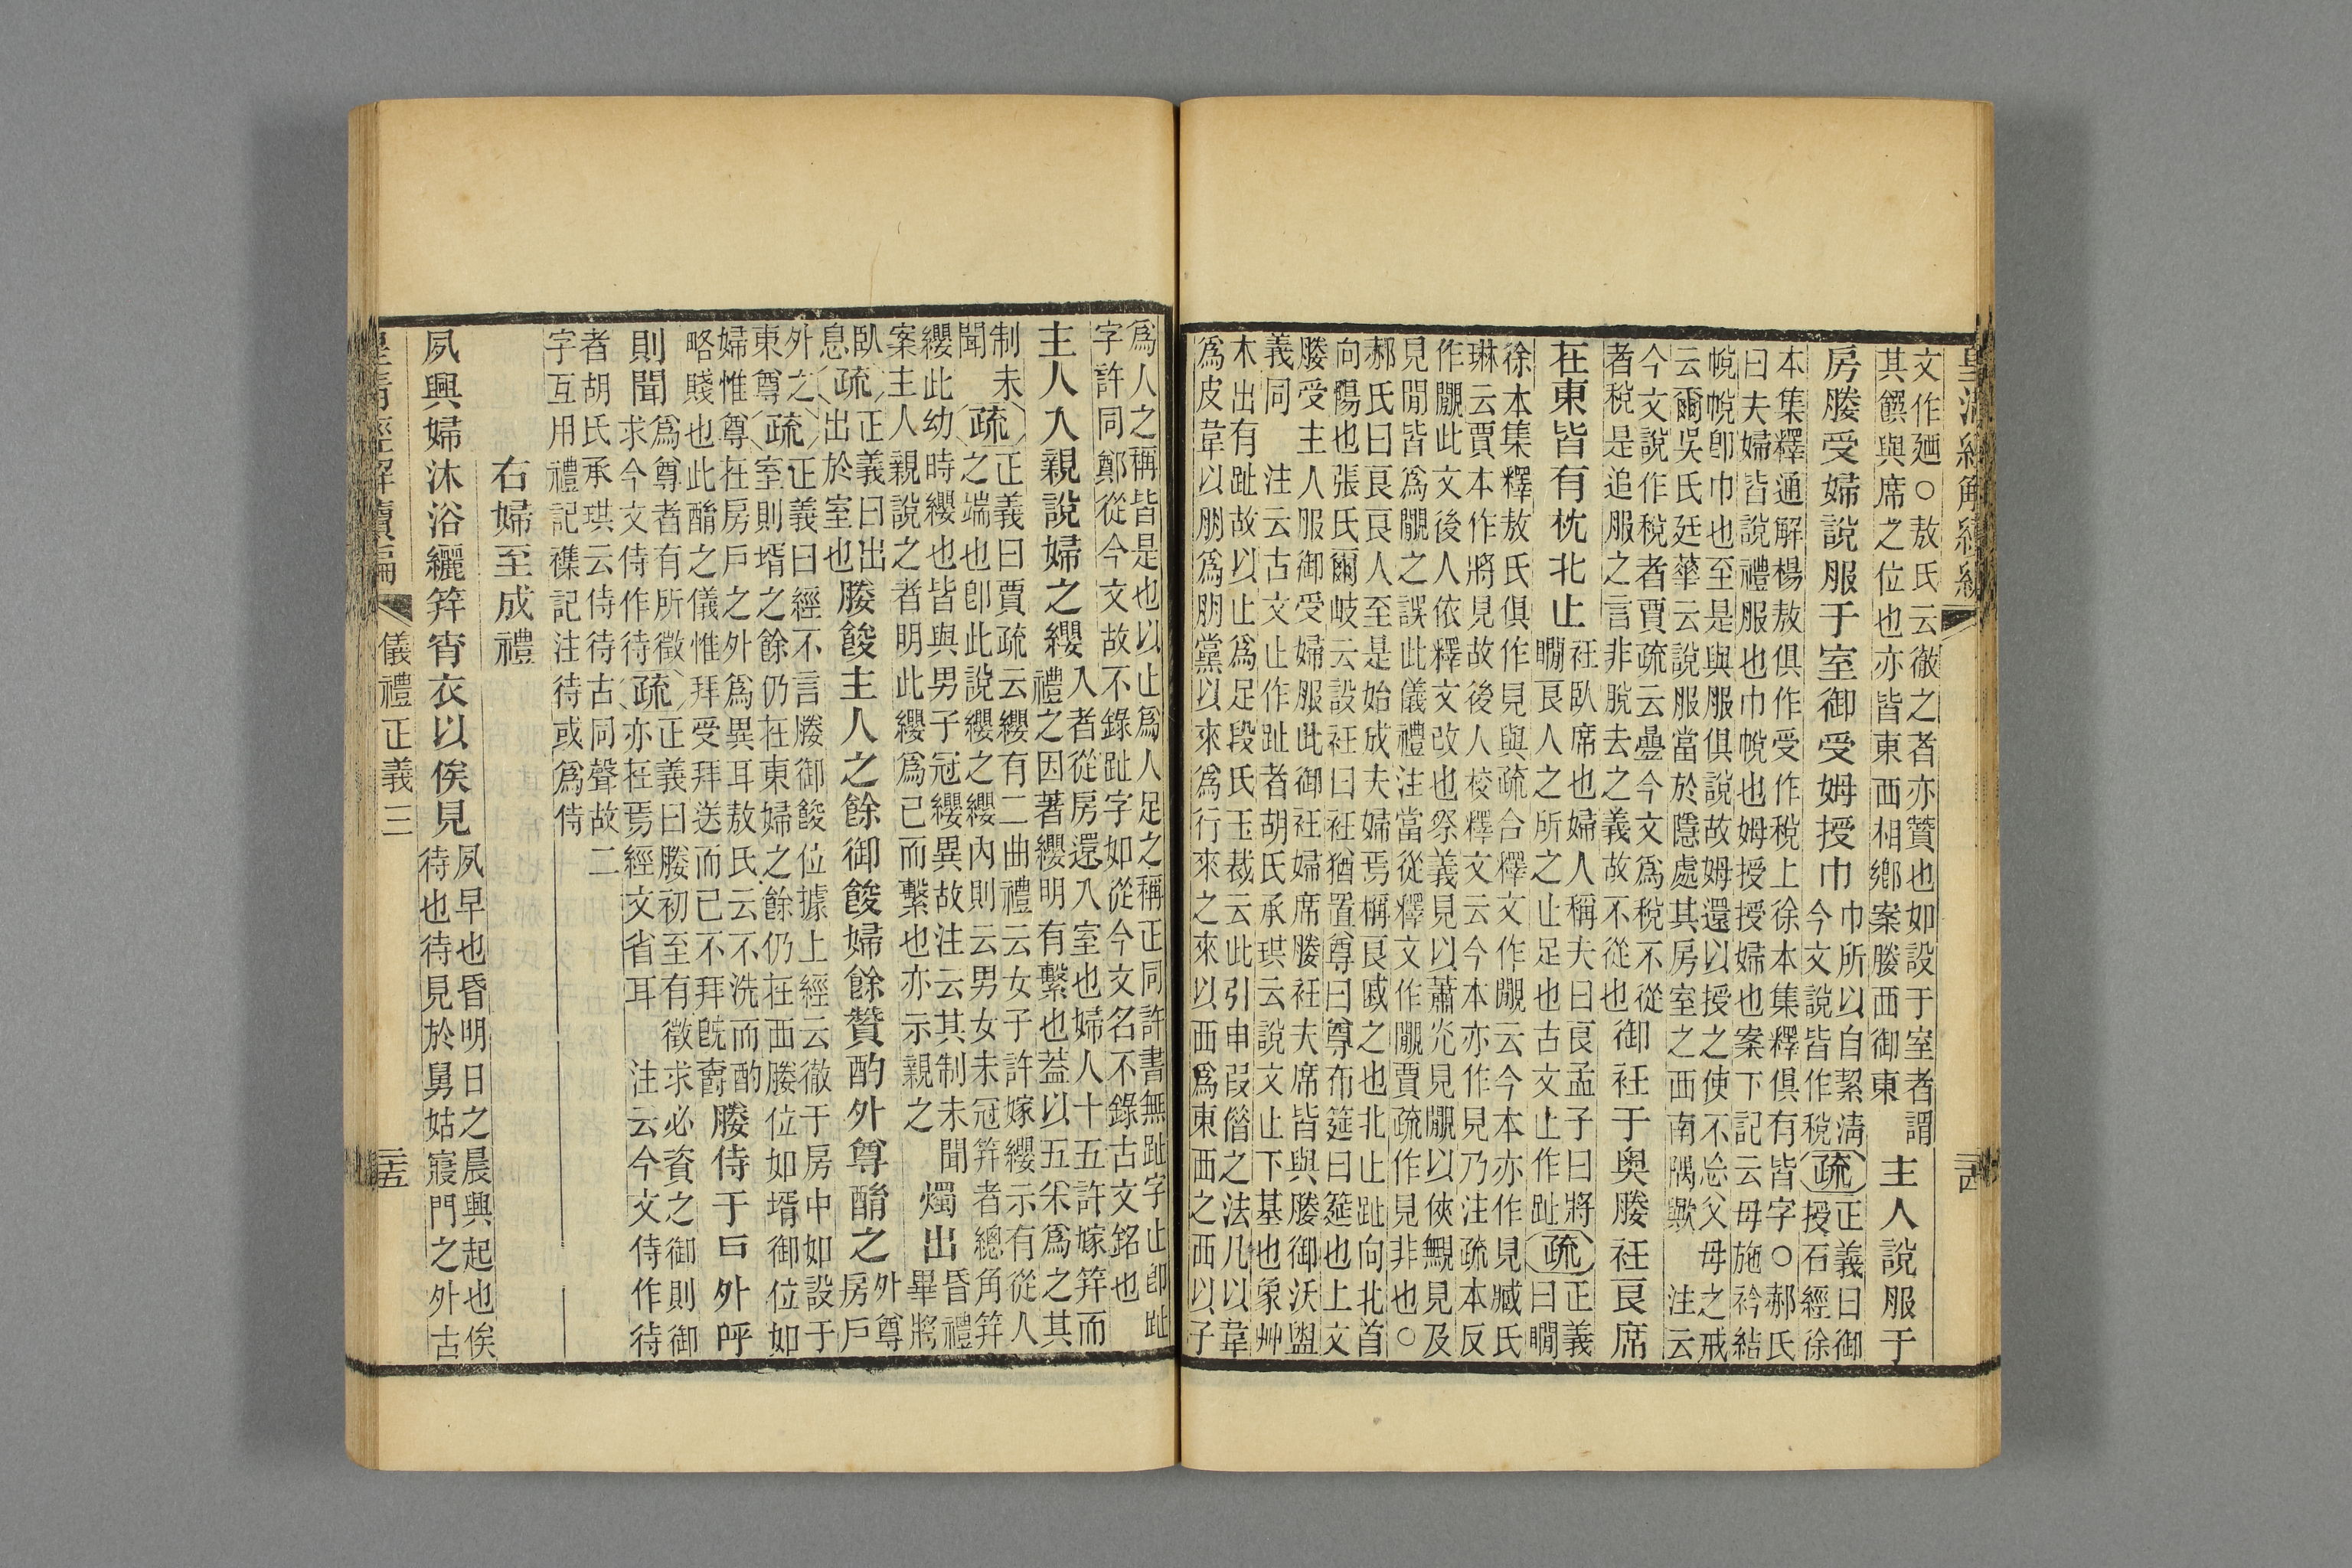 皇清經解續編
二十四
文作廼○敖氏云徹之者亦贊也如設于室者謂
其饌與席之位也亦皆東西相鄉案媵西御東
主人說服于
房媵受婦說服于室御受姆授巾
巾所以自絜清
今文說皆作稅
疏
正義曰御
授石經徐
本集釋通解楊敖俱作受作稅上徐本集釋俱有皆字○郝氏
曰夫婦皆說禮服也巾帨也姆授授婦也案下記云母施衿結
帨帨卽巾也至是與服俱說故姆還以授之使不忘父母之戒
云爾吳氏廷華云說服當於隱處其房室之西南隅歟 注云
今文說作稅者賈疏云疊今文爲稅不從
者稅是追服之言非脫去之義故不從也
御衽于奧媵衽良席
在東皆有枕北止
衽臥席也婦人稱夫曰良孟子曰將
瞷良人之所之止足也古文止作趾
疏
正義
曰瞷
徐本集釋敖氏俱作見與疏合釋文作覸云今本亦作見臧氏
琳云賈本作將見故後人校釋文云今本亦作見乃注疏本反
作覸此文後人依釋文改也祭義見以蕭光見覸以俠甒見及
見閒皆爲覸之誤此儀禮注當從釋文作覸賈疏作見非也○
郝氏曰良良人至是始成夫婦焉稱良戚之也北止趾向北首
向陽也張氏爾岐云設衽曰衽猶置尊曰尊布筵曰筵也上文
媵受主人服御受婦服此御衽婦席媵衽夫席皆與媵御沃盥
義同 注云古文止作趾者胡氏承珙云說文止下基也象艸
木出有趾故以止爲足段氏玉裁云此引申叚偕之法凡以韋
爲皮韋以朋爲朋黨以來爲行來之來以西爲東西之西以子
爲人之稱皆是也以止爲人足之稱正同許書無趾字止卽趾
字許同鄭從今文故不錄趾字如從今文名不錄古文銘也
主人入親說婦之纓
入者從房還入室也婦人十五許嫁笄而
禮之因著纓明有繫也葢以五采爲之其
制未
聞
疏
正義曰賈疏云纓有二曲禮云女子許嫁纓示有從人
之端也卽此說纓之纓內則云男女未冠笄者總角笄
纓此幼時纓也皆與男子冠纓異故注云其制未聞
案主人親說之者明此纓爲己而繫也亦示親之
燭出
昏禮
畢將
臥
息
疏
正義曰出
出於室也
媵餕主人之餘御餕婦餘贊酌外尊酳之
外尊
房戶
外之
東尊
疏
正義曰經不言媵御餕位據上經云徹于房中如設于
室則壻之餘仍在東婦之餘仍在西媵位如壻御位如
婦惟尊在房戶之外爲異耳敖氏云不洗而酌
略賤也此酳之儀惟拜受拜送而已不拜旣爵
媵侍于戶外呼
則聞
爲尊者有所徵
求今文侍作待
疏
正義曰媵初至有徵求必資之御則御
亦在焉經文省耳 注云今文侍作待
者胡氏承珙云侍待古同聲故二
字互用禮記襍記注待或爲侍
右婦至成禮
夙興婦沐浴纚笄宵衣以俟見
夙早也昏明日之晨興起也俟
待也待見於舅姑寢門之外古
皇清經解續編
儀禮正義三
二十五